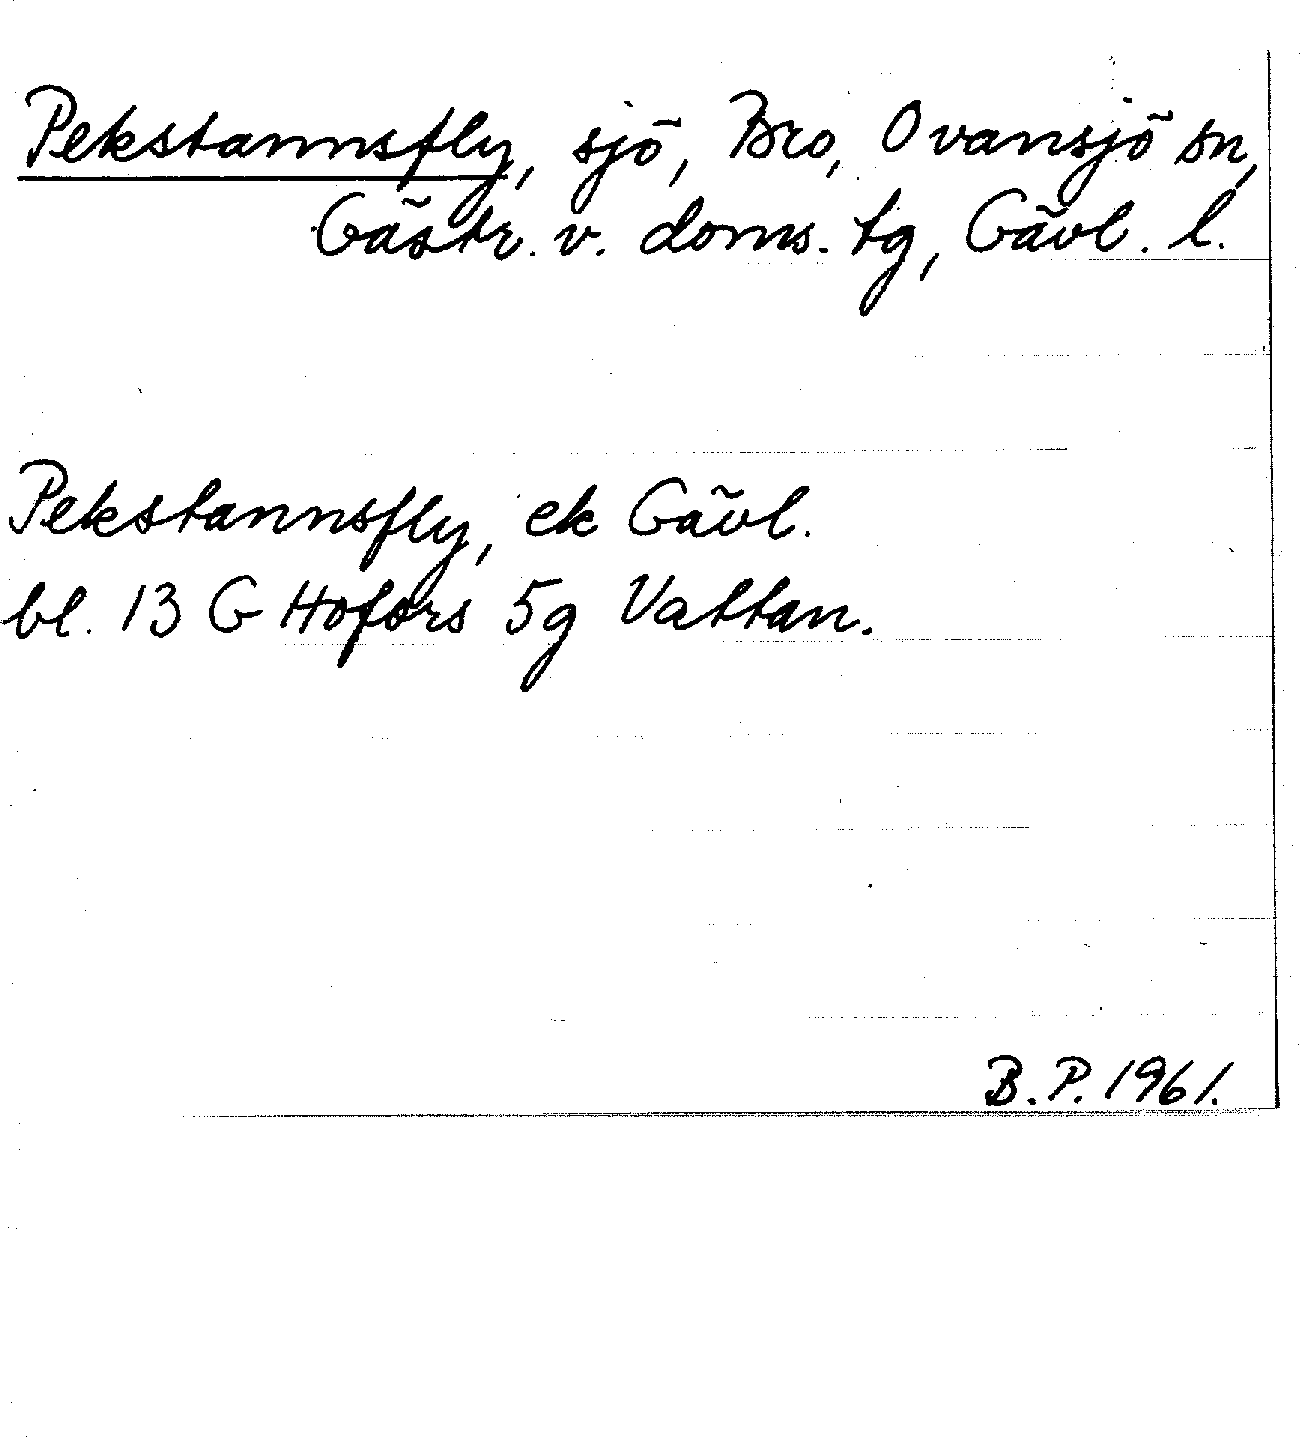 Pekstannsfly, sjö, Bro, Ovansjö sn,
Gästr. v. doms. tg, Gävl. l.
Pekstannsfly, ek Gävl.
bl. 13 G Hofors 5g Vattan.
B.P. 1961.